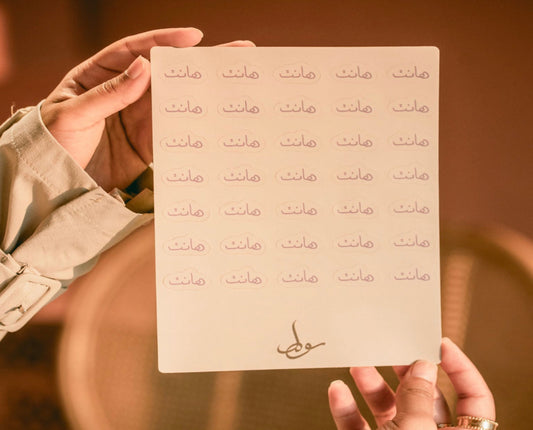 هانت هانت هانت هانت هانت
هانت هانت هانت هانت هانت
هانت هانت هانت هانت هانت
هانت هانت هانت هانت هانت
هانت هانت هانت هانت هانت
هانت هانت هانت هانت هانت
هانت هانت هانت هانت هانت